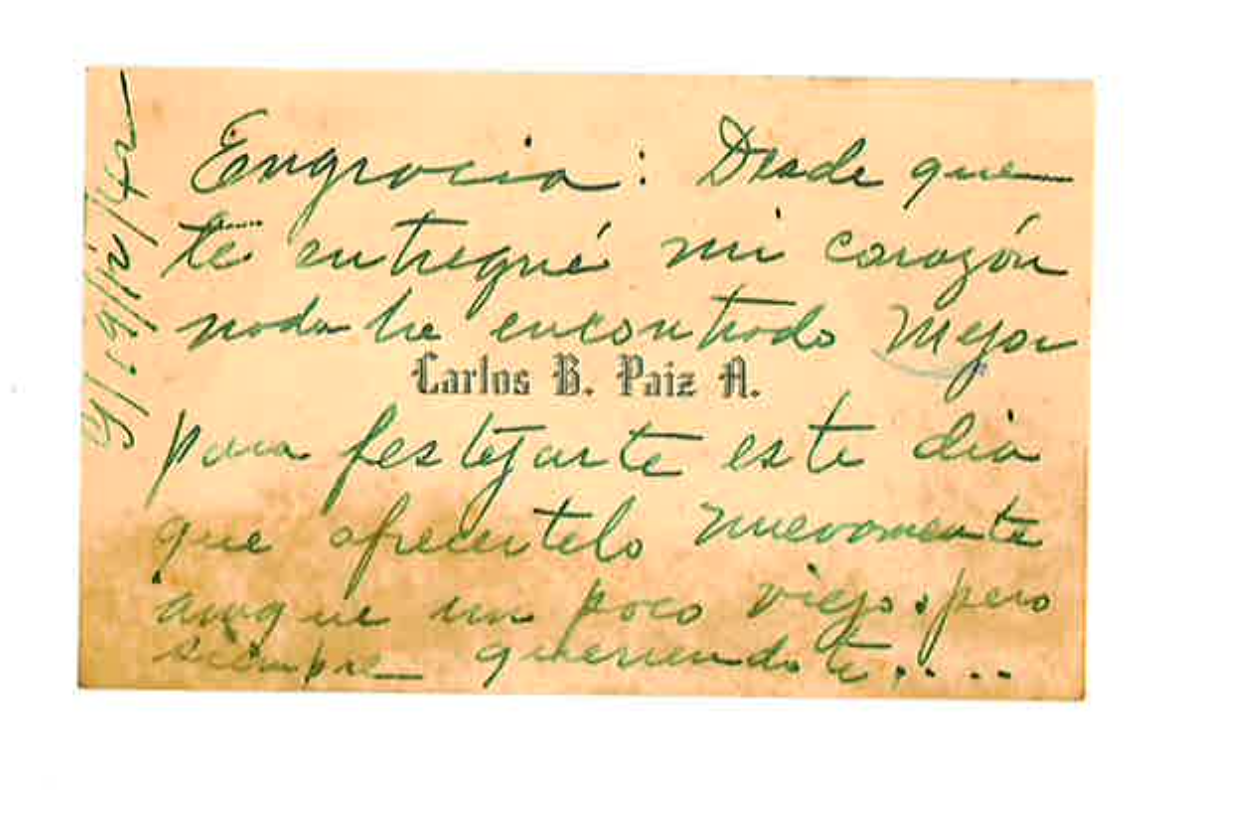 Engracia: Desde que
te entregué mi corazón
nada he encontrado mejor
Carlos B. Paiz A.
para festejarte este dia
que ofrecertelo nuevamente
aunque un poco viejo, pero
siempre queriendote....